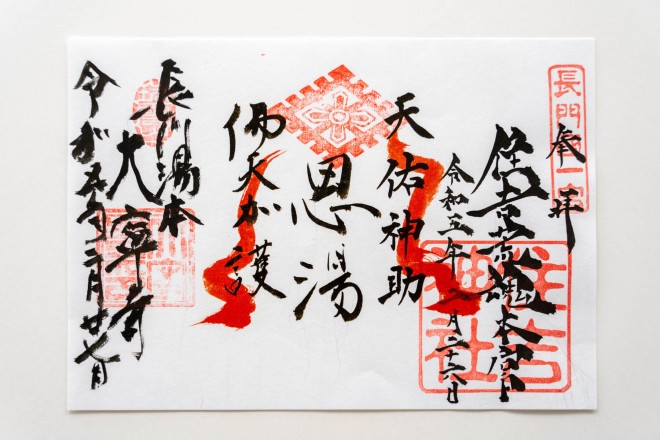 長門国一宮
奉拝
住吉荒魂本宮
住吉神社
令和五年二月二十六日
天佑神助
恩湯
佛天加護
長門湯本
大寧寺
令和五年二月